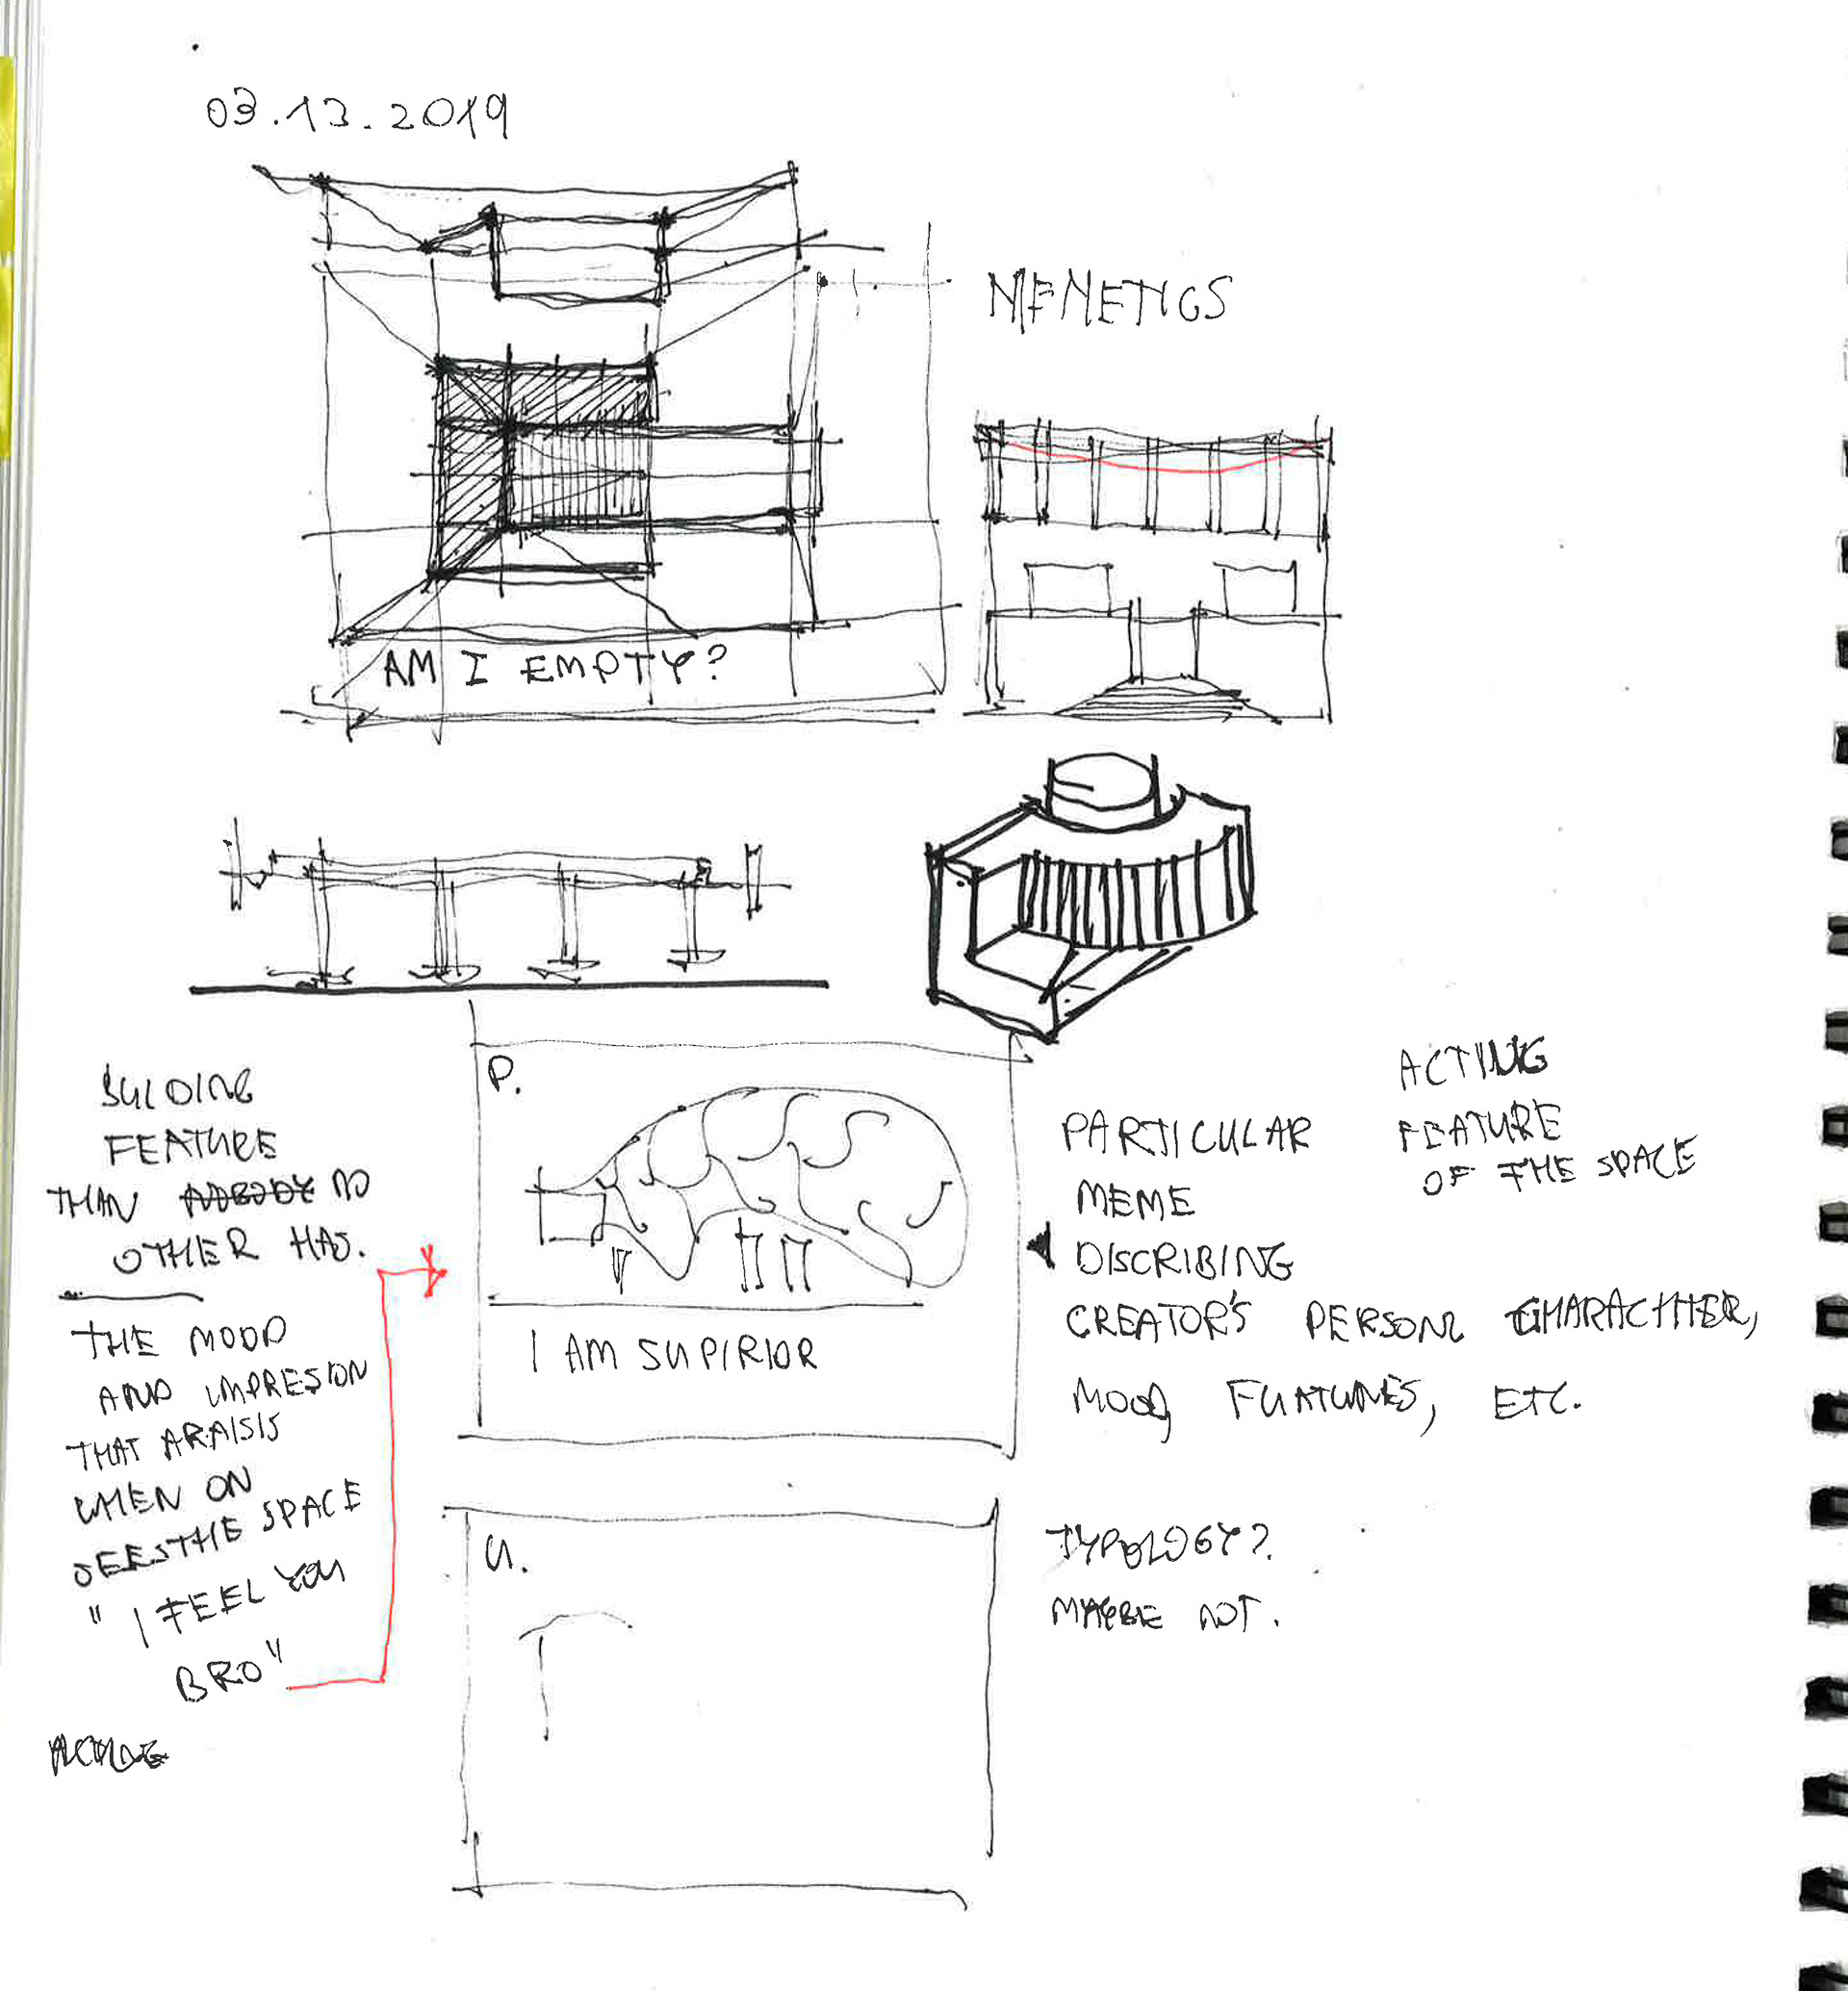 03.13.2019
MEMETICS
AM I EMPTY?
BUILDING
FEATURE
THAN NOBODY NO
OTHER HAS.
THE MOOD
AND IMPRESION
THAT ARAISIS
WHEN ON
SEES THE SPACE
" I FEEL YOU
BRO"
P.
I AM SUPIRIOR
PARTICULAR
MEME
DISCRIBING
CREATOR'S PERSONL CHARACHTER,
MOOD, FUATURES, ETC.
ACTING
FEATURE
OF THE SPACE
U.
TYPOLOGY?
MAYBE NOT.